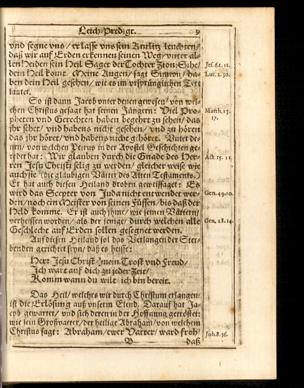 Leich-Predigt. 9
und segne uns / er lasse uns sein Antlitz leuchten /
daß wir auf Erden erkennen seinen Weg / unter al-
len Heiden sein Heil. Saget der Tochter Zion: Siehe /
dein Heil kömt. Meine Augen / sagt Simeon / ha-
ben dein Heil gesehen / wie es im ursprünglichen Text
lautet.
Jes. 62. 11.
Luc. 2. 30.
So ist dann Jacob unter denen gewesen / von wel-
chen Christus gesagt hat seinen Jüngern: Viel Pro-
pheten und Gerechten haben begehrt zu sehen / das
ihr sehet / und habens nicht gesehen / und zu hören
das ihr höret / und habens nicht gehöret. Unter de-
nen / von welchen Petrus in der Apostel Geschichten ge-
redet hat: Wir glauben durch die Gnade des Her-
ren Jesu Christi selig zu werden / gleicher weise wie
auch sie (die gläubigen Väter des Alten Testaments.)
Er hat auch diesen Heiland droben geweissaget: Es
wird das Scepter von Juda nicht entwendet wer-
den / noch ein Meister von seinen Füssen / bis daß der
Held komme. Er ist auch ihme / wie seinen Vätern
verheissen worden / als der jenige / durch welchen alle
Geschlecht auf Erden sollen gesegnet werden.
Matth. 13.
17.
Act. 15. 11.
Gen. 49. 10.
Gen. 28. 14.
Auf diesen Heiland sol das Verlangen der Ster-
benden gerichtet seyn / daß es heisset:
Herr Jesu Christ / mein Trost und Freud /
Ich wart auf dich zu jeder Zeit /
Komm wann du wilt / ich bin bereit.
Das Heil / welches wir durch Christum erlangen /
ist die Erlösung aus unserm Elend. Darauf hat Ja-
cob gewartet / und sich deren in der Hoffnung getröstet:
wie sein Großvatter / der heilige Abraham / von welchem
Christus sagt: Abraham / ewer Vatter / ward froh /
Joh. 8. 56.
B daß